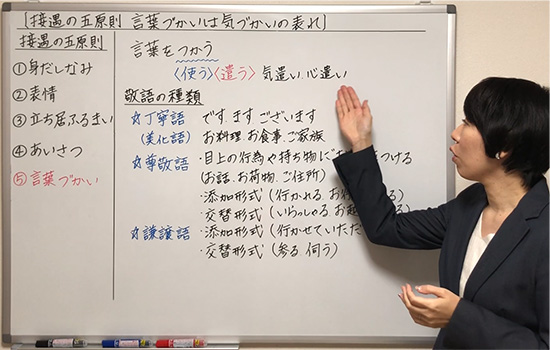 〔接遇の五原則 言葉づかいは気づかいの表れ〕
接遇の五原則
①身だしなみ
②表情
③立ち居ふるまい
④あいさつ
⑤言葉づかい
言葉をつかう
〈使う〉〈遣う〉気遣い、心遣い
敬語の種類
☆丁寧語 です、ます ございます
(美化語) お料理、お食事、ご家族
☆尊敬語 ・目上の行為や持ち物に つける
(お話、お荷物、ご住所)
・添加形式(行かれる、お行 る)
・交替形式(いらっしゃる、お る)
☆謙譲語 ・添加形式(行かせていただ
・交替形式(参る 伺う)